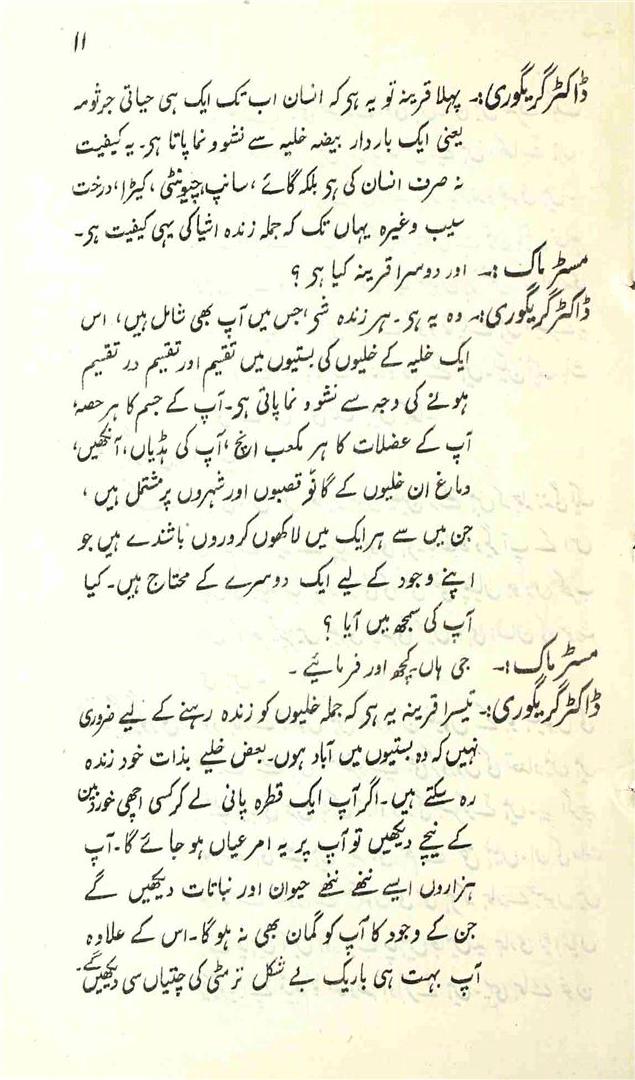 ۱۱
ڈاکٹر گریگوری:۔ پہلا قرینہ تو یہ ہی کہ انسان اب تک ایک ہی حیاتی جرثومہ
یعنی ایک باردار بیضہ خلیہ سے نشو و نما پاتا ہی۔ یہ کیفیت
نہ صرف انسان کی ہی بلکہ گائے، سانپ، چیونٹی، کیڑا، درخت
سیب وغیرہ یہاں تک کہ جملہ زندہ اشیا کی یہی کیفیت ہی۔
مسٹر ماک :۔ اور دوسرا قرینہ کیا ہی ؟
ڈاکٹر گریگوری:۔ وہ یہ ہی۔ ہر زندہ شی، جس میں آپ بھی شامل ہیں، اس
ایک خلیہ کے خلیوں کی بستیوں میں تقیم اور تقیم در تقیم
ہونے کی وجہ سے نشو و نما پاتی ہی۔ آپ کے جسم کا ہر حصہ،
آپ کے عضلات کا ہر مکعب انچ، آپ کی ہڈیاں، آنکھیں،
دماغ ان خلیوں کے گانو قصبوں اور شہروں پر مشتمل ہیں،
جن میں سے ہر ایک میں لاکھوں کروروں باشندے ہیں جو
اپنے وجود کے لیے ایک دوسرے کے محتاج ہیں۔ کیا
آپ کی سمجھ میں آیا ؟
مسٹر ماک :۔ جی ہاں۔ کچھ اور فرمائیے ۔
ڈاکٹر گریگوری:۔ تیسرا قرینہ یہ ہی کہ جملہ خلیوں کو زندہ رہنے کے لیے ضروری
نہیں کہ وہ بستیوں میں آباد ہوں۔ بعض خلیے بذات خود زندہ
رہ سکتے ہیں۔ اگر آپ ایک قطرہ پانی لے کر کسی اچھی خوردبین
کے نیچے دیکھیں تو آپ پر یہ امر عیاں ہو جائے گا۔ آپ
ہزاروں ایسے ننھے ننھے حیوان اور نباتات دیکھیں گے
جن کے وجود کا آپ کو گمان بھی نہ ہو گا۔ اس کے علاوہ
آپ بہت ہی باریک بے شکل نرمٹی کی چتیاں سی دیکھیں گے۔